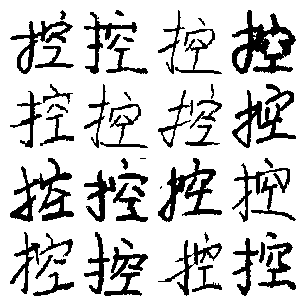 控控控控
控控控控
控控控控
控控控控